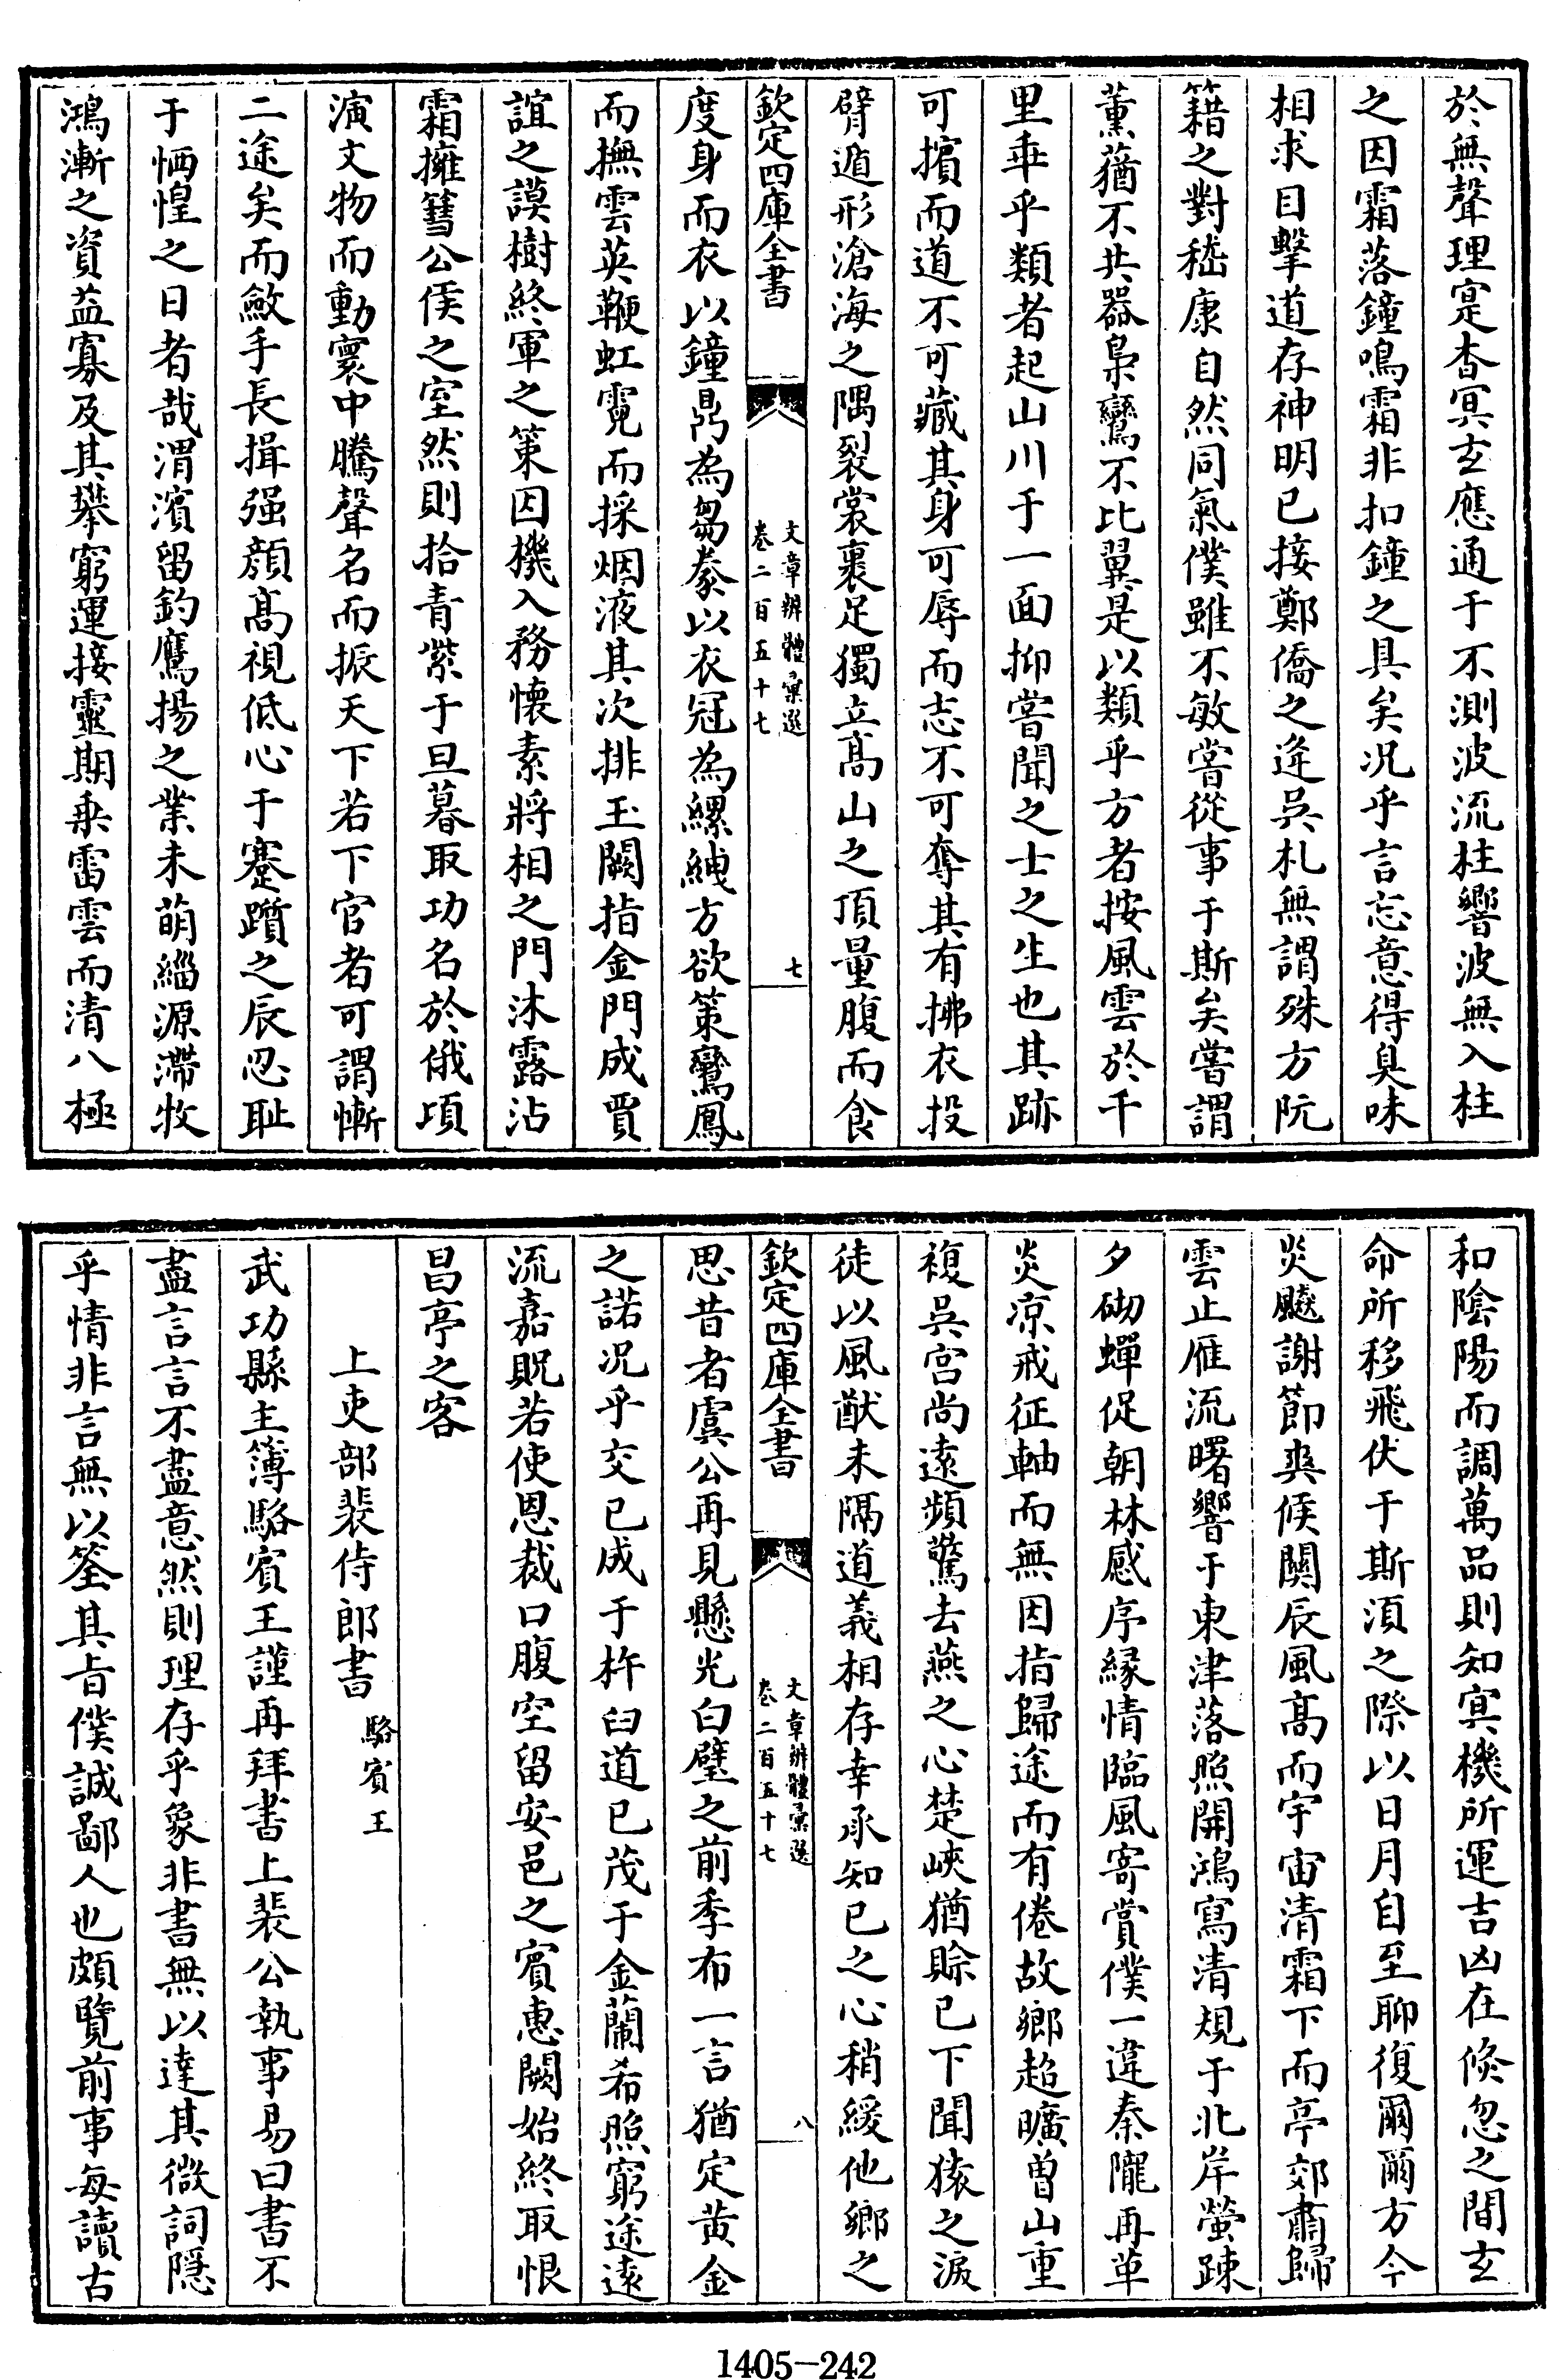 於無聲理寔杳冥玄應通于不測波流柱響波無入柱
之因霜落鐘鳴霜非扣鐘之具矣况乎言忘意得臭味
相求目擊道存神明已接鄭僑之逄吳札無謂殊方阮
籍之對嵇康自然同氣僕雖不敏嘗從事于斯矣嘗謂
薰蕕不共器梟鸞不比翼是以類乎方者按風雲於千
里乖乎類者起山川于一面抑嘗聞之士之生也其跡
可擯而道不可藏其身可辱而志不可奪其有拂衣投
臂遁形滄海之隅裂裳裹足獨立髙山之頂量腹而食
欽定四庫全書
文章辨體彙選
卷二百五十七
七
度身而衣以鐘鼎為芻豢以衣冠為縲絏方欲策鸞鳳
而撫雲英鞭虹霓而採烟液其次排玉闕指金門成賈
誼之謨樹終軍之策因機入務懷素將相之門沐露沾
霜擁篲公侯之室然則拾青紫于旦暮取功名於俄頃
演文物而動寰中騰聲名而振天下若下官者可謂慚
二途矣而斂手長揖强顔髙視低心于蹇躓之辰忍耻
于恓惶之日者哉渭濱留釣鷹揚之業未萌緇源滯牧
鴻漸之資葢寡及其攀窮運接靈期乗雷雲而清八極
和陰陽而調萬品則知㝠機所運吉凶在倏忽之間玄
命所移飛伏于斯湏之際以日月自至聊復爾爾方今
炎飈謝節爽候闗辰風髙而宇宙清霜下而亭郊肅歸
雲止雁流曙響于東津落照開鴻寫清規于北岸螢疎
夕砌蟬促朝林感序緣情臨風寄賞僕一違秦隴再革
炎凉戒征軸而無因指歸途而有倦故鄉超曠曾山重
複吳宫尚遠頻驚去燕之心楚峽猶賒已下聞猿之淚
徒以風猷未隔道義相存幸承知已之心稍緩他鄉之
欽定四庫全書
文章辨體彙選
卷二百五十七
八
思昔者虞公再見懸光白璧之前季布一言猶定黄金
之諾况乎交已成于杵臼道已茂于金蘭希照窮途逺
流嘉貺若使恩裁口腹空留安邑之賓惠闕始終取恨
昌亭之客
上吏部裴侍郎書
駱賓王
武功縣主簿駱賓王謹再拜書上裴公執事易曰書不
盡言言不盡意然則理存乎象非書無以達其微詞隠
乎情非言無以筌其旨僕誠鄙人也頗覽前事每讀古
1405-242